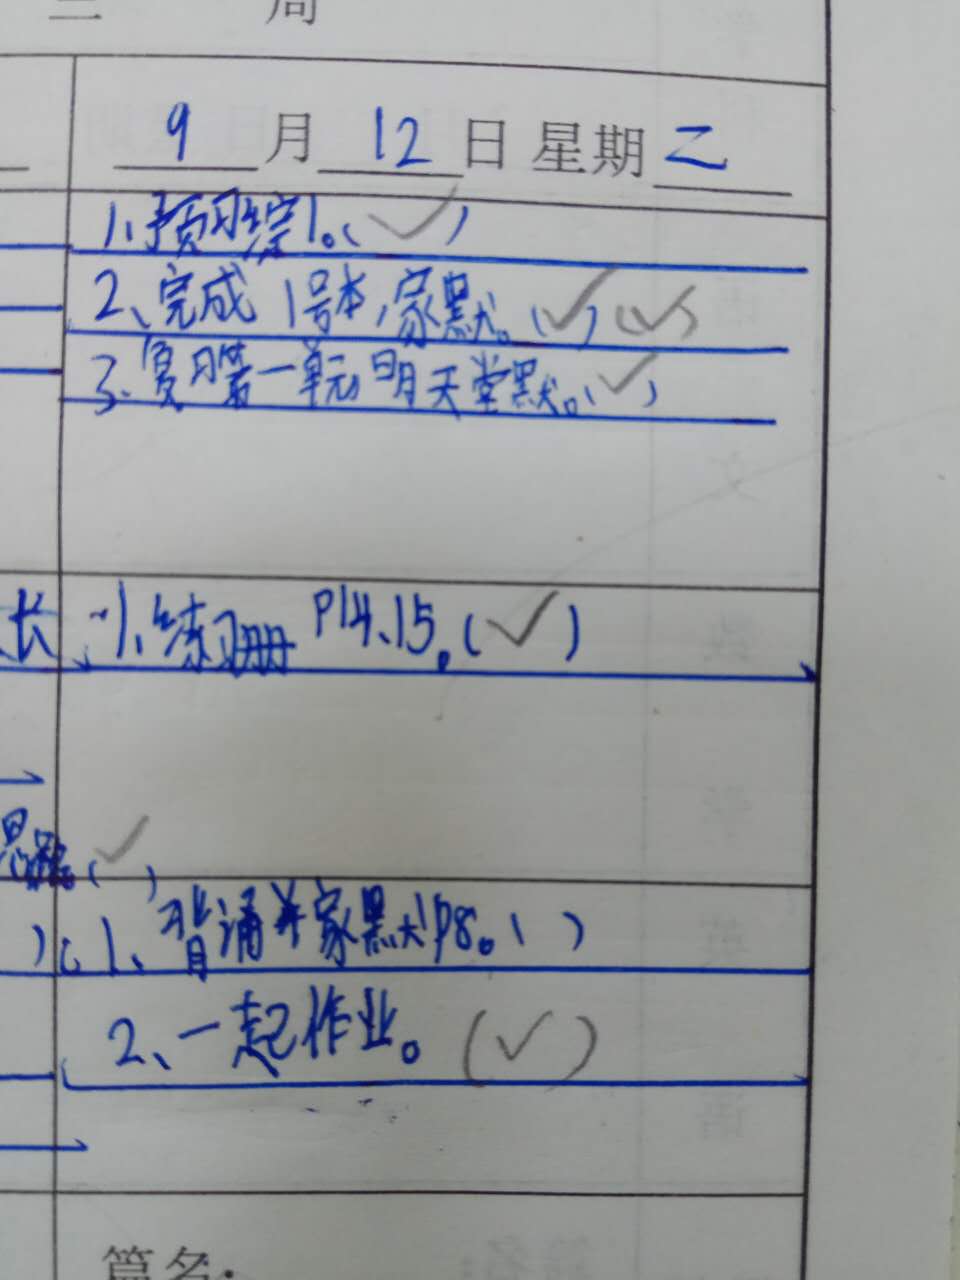 三 周
9月12日 星期二
1、预习综1。(✓)
2、完成1号本,家默。(✓)(✓)
3、复习第一单元明天堂默。(✓)
长 1、练习册P14、15。(✓)
(✓)
) 1、背诵并家默P8。( )
2、一起作业。(✓)
签名: